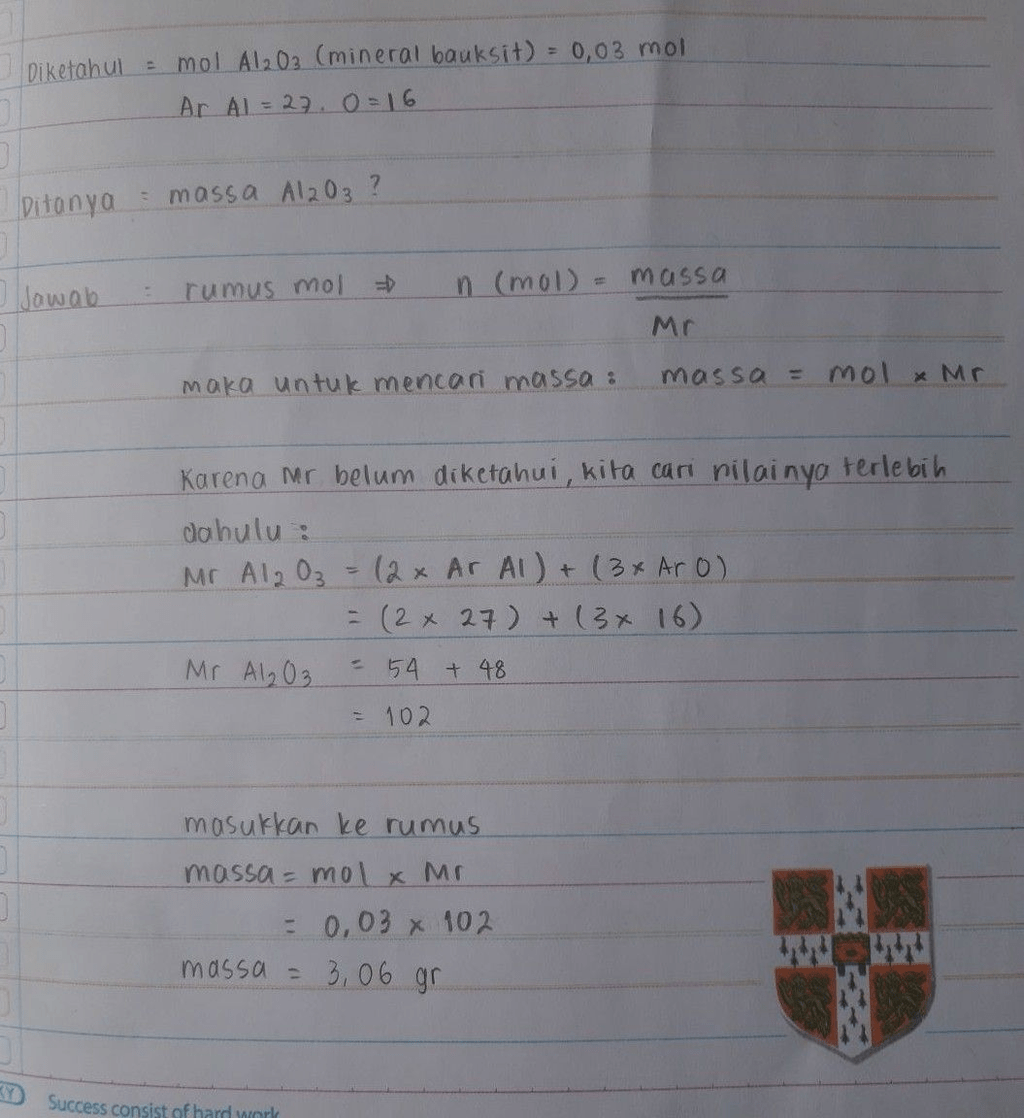 Diketahui = mol Al₂O₃ (mineral bauksit) = 0,03 mol
Ar Al = 27. O = 16
Ditanya = massa Al₂O₃ ?
Jawab : rumus mol ⇒ n (mol) = massa
Mr
maka untuk mencari massa : massa = mol × Mr
Karena Mr belum diketahui, kita cari nilainya terlebih
dahulu :
Mr Al₂O₃ = (2 × Ar Al) + (3 × Ar O)
= (2 × 27) + (3 × 16)
Mr Al₂O₃ = 54 + 48
= 102
masukkan ke rumus
massa = mol × Mr
= 0,03 × 102
massa = 3,06 gr
KY Success consist of hard work